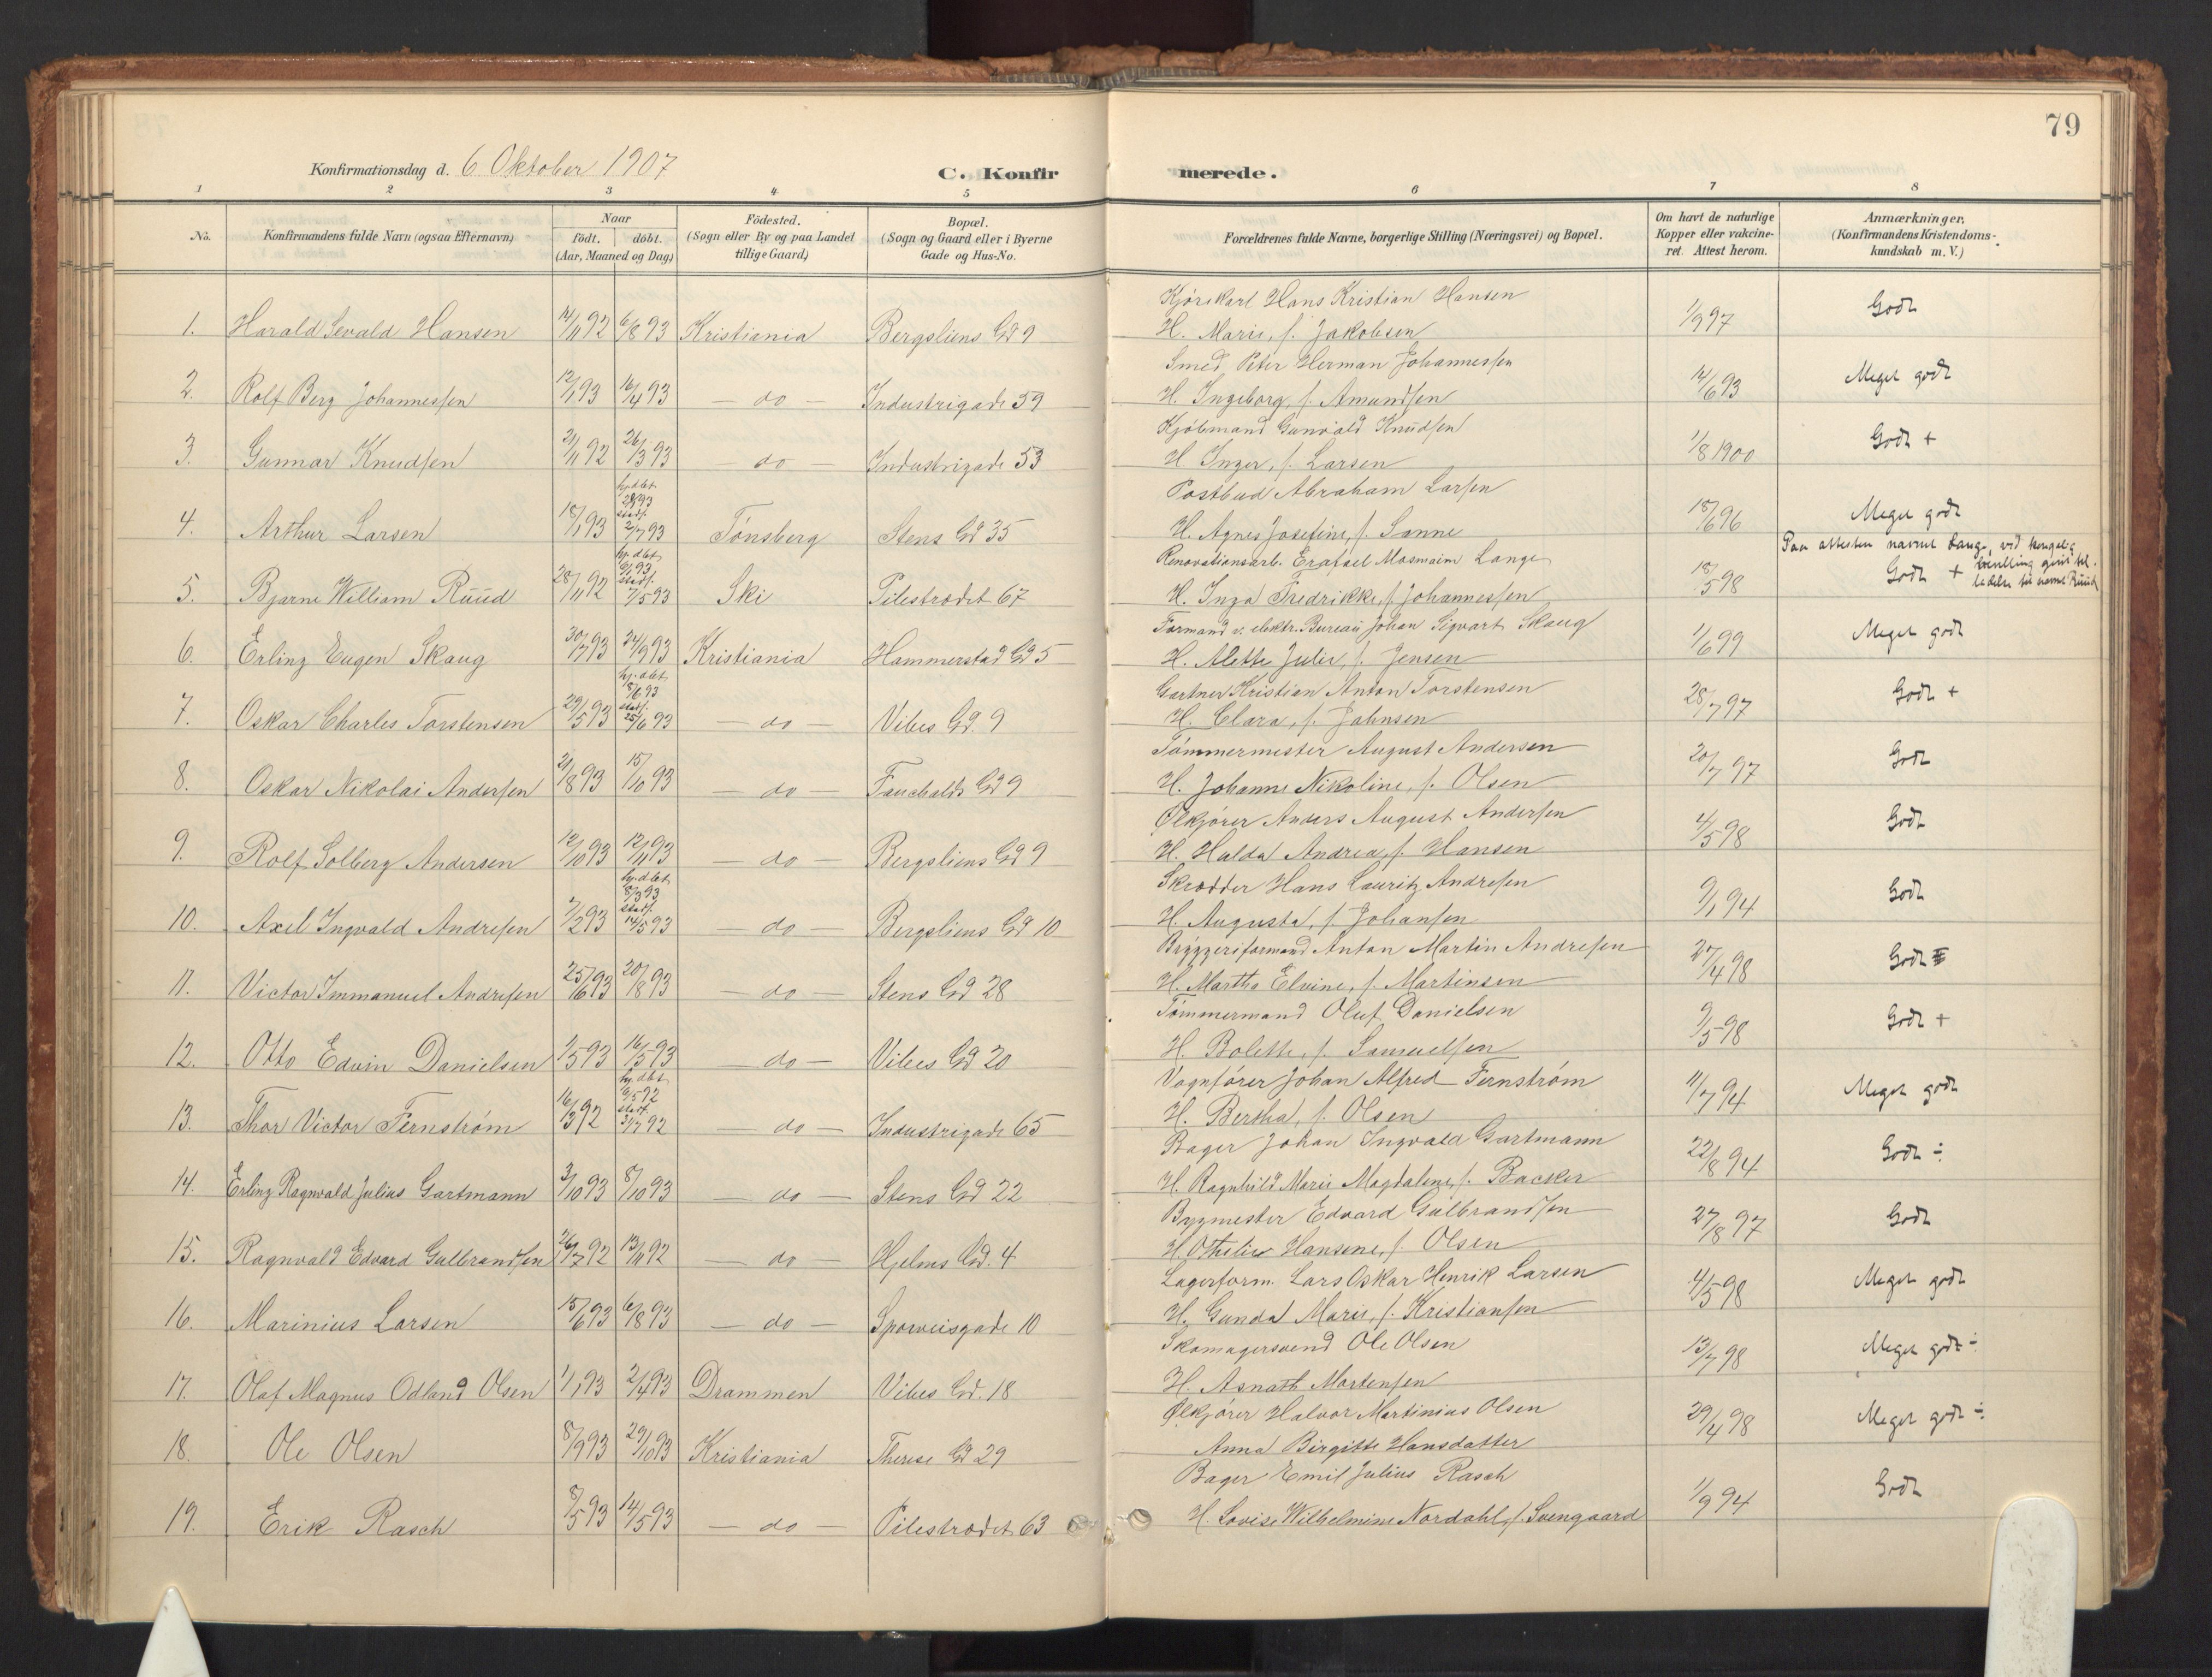 79
Konfirmationsdag d. 6 Oktober 1907
C. Konfirmerede.
1 2 3 4 5 6 7 8
No.
Konfirmandens fulde Navn (ogsaa Efternavn)
Naar
födt. döbt.
(Aar, Maaned og Dag)
Födested.
(Sogn eller By og paa Landet
tillige Gaard)
Bopæl.
(Sogn og Gaard eller i Byerne
Gade og Hus-No.
Forældrenes fulde Navne, borgerlige Stilling (Næringsvei) og Bopæl.
Om havt de naturlige
Kopper eller vakcine-
ret. Attest herom.
Anmærkninger.
(Konfirmandens Kristendoms-
kundskab m. V.)
Kjörekarl Hans Kristian Hansen
1. Harald Sevald Hansen 14/11 92 6/8 93 Kristiania Bergsliens Gd 9 H. Marie, f. Jakobsen 1/9 97 Godt
Smed Peter Herman Johannessen
2. Rolf Berg Johannessen 12/1 93 16/4 93 — do — Industrigade 39 H. Ingeborg, f. Amundsen 14/6 93 Meget godt
Kjöbmand Gunvald Knudsen
3. Gunnar Knudsen 21/11 92 26/3 93 — do — Industrigade 53 H. Inger, f. Larsen 1/8 1900 Godt +
Postbud Abraham Larsen
hj. döbt
stadf.
4. Arthur Larsen 18/1 93 2/7 93 Tønsberg Stens Gd 35 H. Agnes Josefine, f. Sanne 18/6 96 Meget godt
Renovationsarb. Erafael Mosmaim Lange
Paa attesten navnet Lange, ved kongelig bevilling givet til-
ladelse til navnet Ruud
hj. döbt
stadf.
5. Bjarne William Ruud 28/11 92 7/5 93 Ski Pilestrædet 67 H. Inga Fredrikke, f. Johannessen 18/5 98 Godt +
Formand v. elektr. Bureau Johan Sigvart Skaug
6. Erling Eugen Skaug 30/7 93 24/9 93 Kristiania Hammerstad Gd 5 H. Alette Julie, f. Jensen 1/6 99 Meget godt
Gartner Kristian Anton Torstensen
hj. döbt
8/6 93
stadf.
7. Oskar Charles Torstensen 29/5 93 25/6 93 — do — Vibes Gd. 9 H. Clara, f. Johnsen 28/7 97 Godt +
Tömmermester August Andersen
8. Oskar Nikolai Andersen 21/8 93 15/10 93 — do — Fauchalds Gd 9 H. Johanne Nikoline, f. Olsen 20/7 97 Godt
Ølkjörer Anders August Andersen
9. Rolf Solberg Andersen 12/10 93 12/11 93 — do — Bergsliens Gd 9 H. Halda Andrea, f. Hansen 4/5 98 Godt
Skrædder Hans Lauritz Andresen
hj. döbt
8/3 93
stadf.
10. Axel Ingvald Andresen 7/2 93 14/5 93 — do — Bergsliens Gd 10 H. Augusta, f. Johansen 9/1 94 Godt
Bryggeriformand Anton Martin Andresen
11. Victor Immanuel Andresen 25/6 93 20/8 93 — do — Stens Gd 28 H. Martha Elvine, f. Martinsen 27/4 98 Godt
Tömmermand Oluf Danielsen
12. Otto Edvin Danielsen 1/5 93 16/5 93 — do — Vibes Gd 20 H. Bolette, f. Samuelsen 9/5 98 Godt +
Vognförer Johan Alfred Fernström
hj. döbt
6/5 92
stadf.
13. Thor Victor Fernström 16/3 92 31/7 92 — do — Industrigade 65 H. Bertha, f. Olsen 11/7 94 Meget godt
Bager Johan Ingvald Gartmann
14. Erling Ragnvald Julius Gartmann 3/10 93 8/10 93 — do — Stens Gd 22 H. Ragnhild Marie Magdalene, f. Backer 22/8 94 Godt ÷
Bygmester Edvard Gulbrandsen
15. Ragnvald Edvard Gulbrandsen 26/7 92 13/11 92 — do — Hjelms Gd. 4 H. Othelie Hansene, f. Olsen 27/8 97 Godt
Lagerform. Lars Oskar Henrik Larsen
16. Marinius Larsen 15/6 93 6/8 93 — do — Sporveisgade 10 H. Gunda Marie, f. Kristiansen 4/5 98 Meget godt
Skomagersvend Ole Olsen
17. Olaf Magnus Odland Olsen 1/1 93 2/4 93 Drammen Vibes Gd. 18 H. Asnath Mortensen 13/7 98 Meget godt ÷
Ølkjörer Halvor Martinius Olsen
18. Ole Olsen 8/9 93 29/10 93 Kristiania Therese Gd 29 Anna Birgitte Hansdatter 29/4 98 Meget godt ÷
Bager Emil Julius Rasch
19. Erik Rasch 8/5 93 14/5 93 — do — Pilestrædet 63 H. Lovise Wilhelmine Nordahl, f. Svengaard 1/9 94 Godt